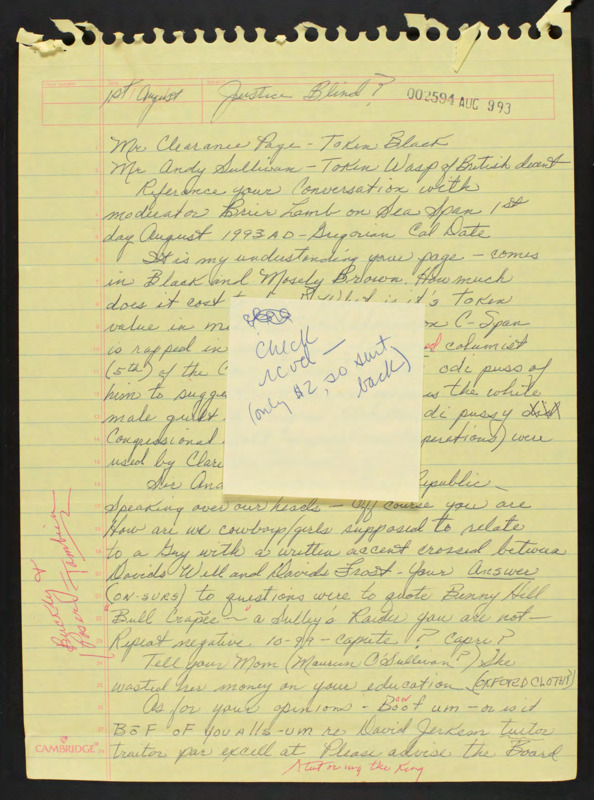 1st August Justice Blind? 002594 AUG 993
Mr Clearance Page - Token Black
Mr Andy Sullivan - Token Wasp of British decent
Reference your Conversation with
moderator Brier Lamb on Sea Span 1st
day August 1993 AD - Gregorian Cal Date
It is my understanding your page - comes
in Black and Mosely Brown. How much
does it cost What is it's Token
value in C-Span
is rapped in columist
(5th) of the odi puss of
him to the white
male guilt di pussy
Congressional were
used by
Sir Republic -
Speaking over our heads - Off course you are
How are we cowboys/girls supposed to relate
to a Guy with a written ascent crossed between
Davids Will and Davids Frost - Your Answer
(ON-SURS) to questions were to quote Benny Hill
Bull Crapee - "a Sulley's Raider you are not -
Repeat negative 10-99 - capute ? Capri?
Tell your Mom (Maureen O'Sullivan?) She
wastied her money on your education (OXFORD CLOTH?)
As for your opinions - Boof um - or is it
BōF OF YOU Alls - um re David Jerkem tutor
traitor par excell at Please advise the Board
Check
rcvd -
(only #2, so sent
back)
CAMBRIDGE